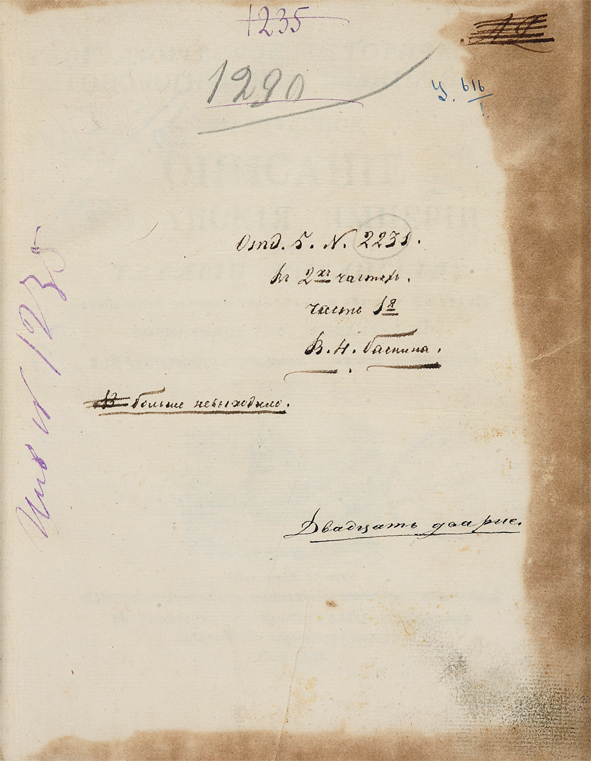 1235
1290
У. 616
Отд. 5. N. 2231.
въ 2хъ частяхъ.
часть 1я
В. Н. Баснина.
больше невыходило.
Двадцать два рис.
Инв N 1235